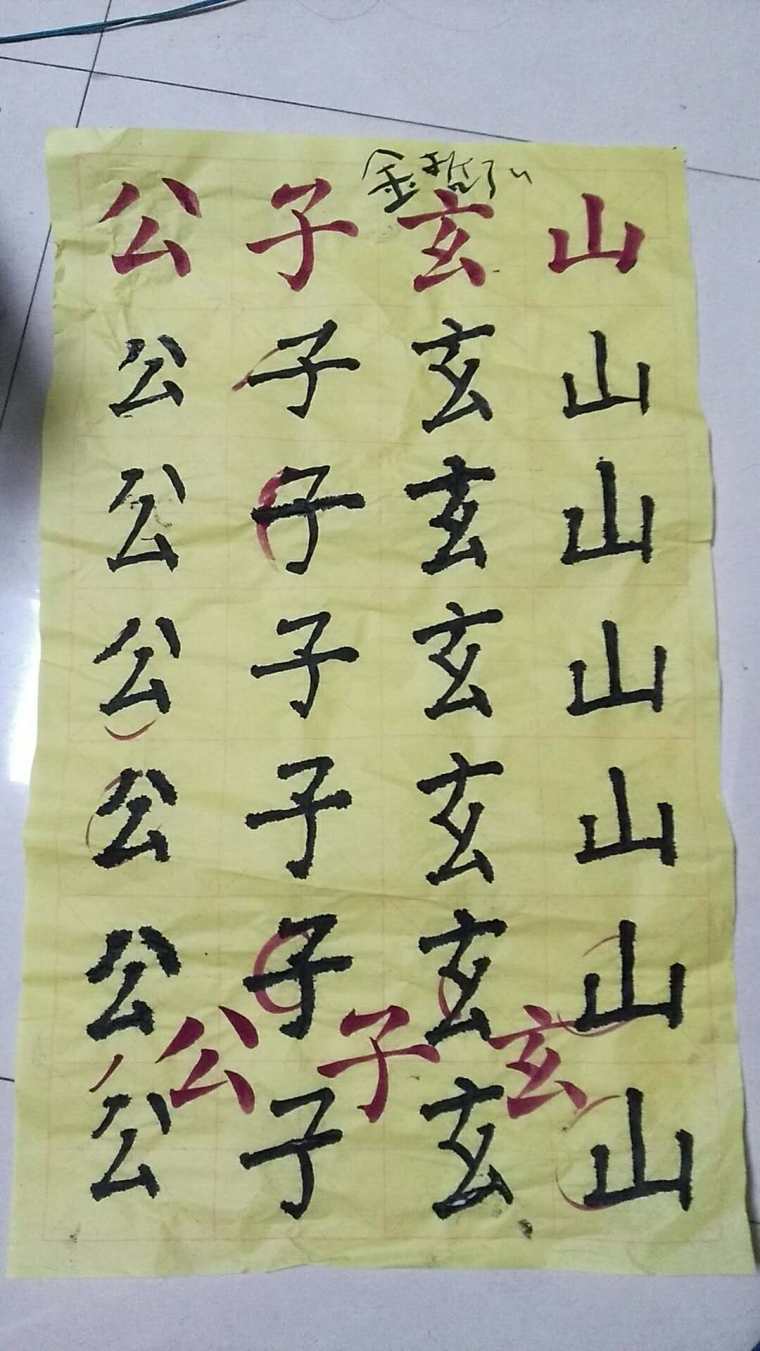 公子玄山
公子玄山
公子玄山
公子玄山
公子玄山
公子玄山
公子玄
公子玄山